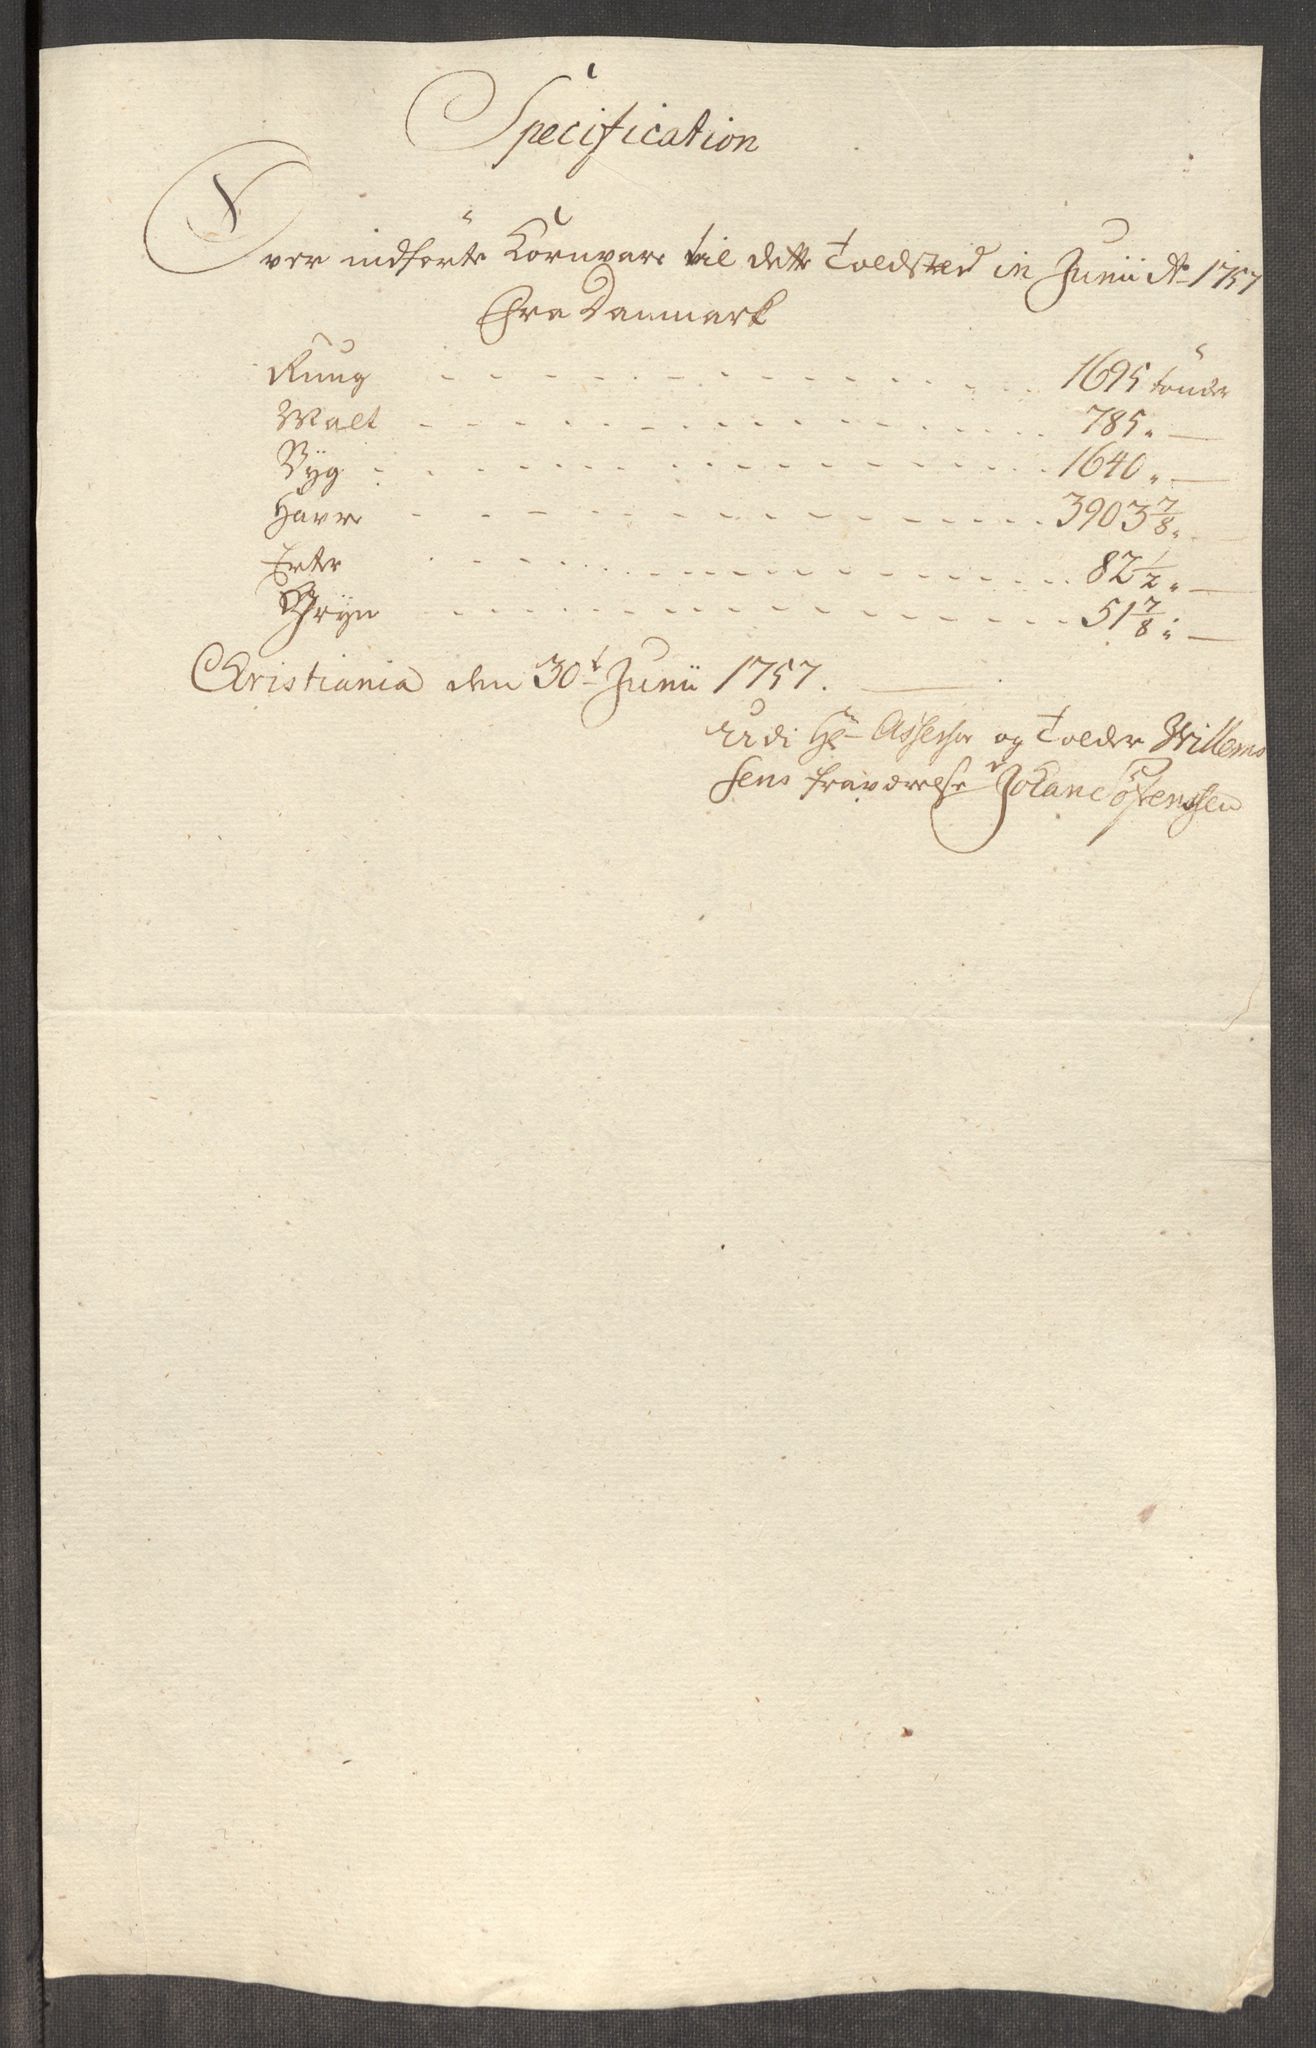 Specification
Over indførte Kornvare til dette Toldsted in Junii Ao 1757
Fra Danmark
Rung - - - 1695 tønder
Malt - - - 785 " —
Byg - - - 1640 " —
Havre - - - 3903 7/8 " —
Erter - - - 82 1/2 " —
Gryn - - - 51 7/8 " —
Christiania den 30t Junii 1757.
Udi Hr Assessor og Tolder Willems
sens fraværelse Johan Sørenssen